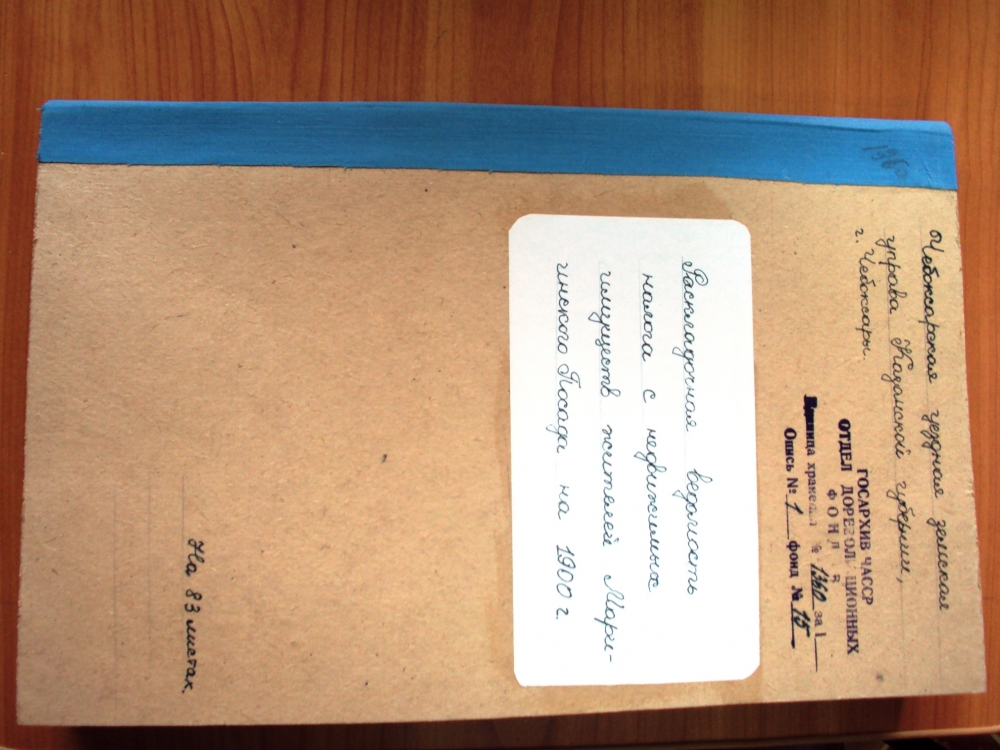 Чебоксарская уездная земская
управа Казанской губернии,
г. Чебоксары.
ГОСАРХИВ ЧАССР
ОТДЕЛ ДОРЕВОЛЮЦИОННЫХ
ФОНДОВ
Единица хранения № 1360 за 1
Опись № 1 фонд № 15
Раскладочная ведомость
налога с недвижимых
имуществ жителей Мари-
инского Посада на 1900 г.
На 83 листах.